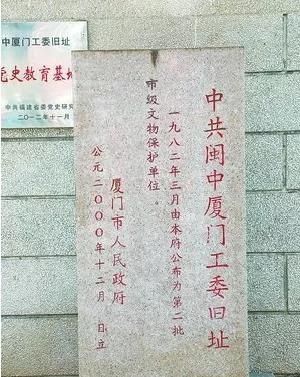 中厦门工委旧址
党史教育基地
中共福建省委党史研究
二〇一二年十一月
中共闽中厦门工委旧址
一九八二年三月由本府公布为第二批
市级文物保护单位。
厦门市人民政府
公元二000年十二月 日立